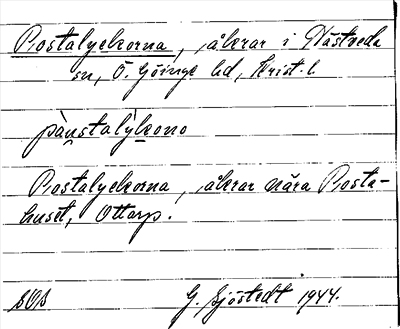 Rostalyekorna, åkrar i Västveda
sn, Ö. Göinge hd, Krist. l.
Rostalyekorna, åkrar nära Rosta-
huset, Ottarp.
SOA G. Sjöstedt 1944.